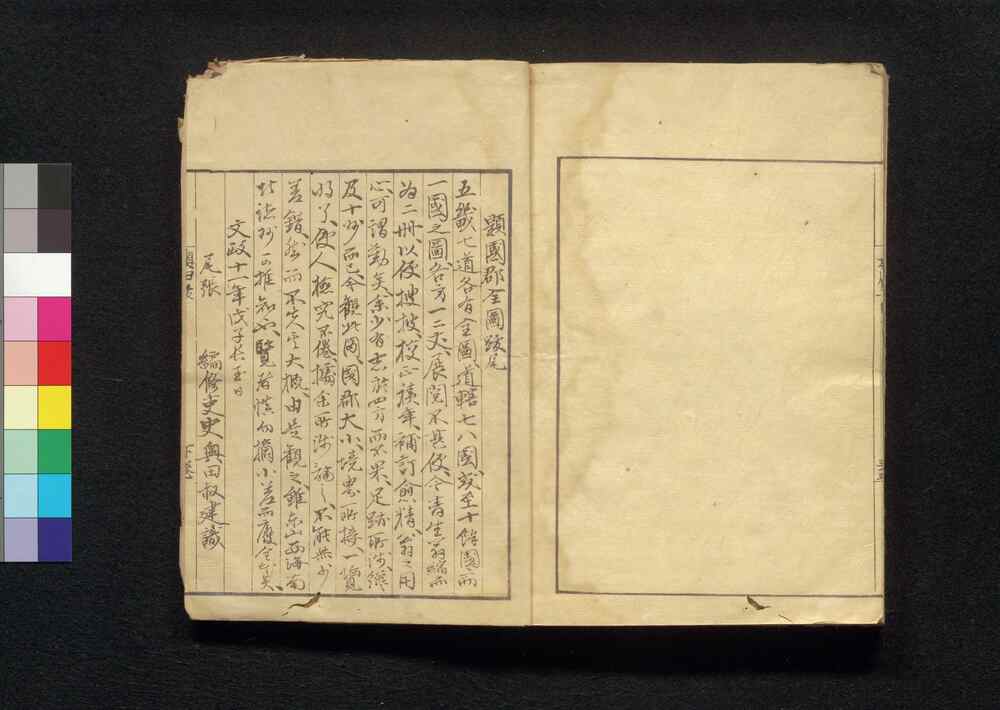 題國郡全圖跋尾
五畿七道各有全圖道轄七八國或至十餘國而
一國之圖各方一二丈展閲不甚便今青生翁縮而
為二冊以便搜披校正積年補訂愈精翁之用
心可謂勤矣余少有志於四方而不果足跡所渉纔
及十州而已今觀此圖國郡大小境界所接一覽
明了使人披究不倦據余所渉 之不能無少
差錯然而不失其大概由是觀之雖東山西海南
北諸州可推知也覽者慎勿摘小差而廢全 矣
文政十一年戊子長至日
尾張 編修吏吏奥田叔建識